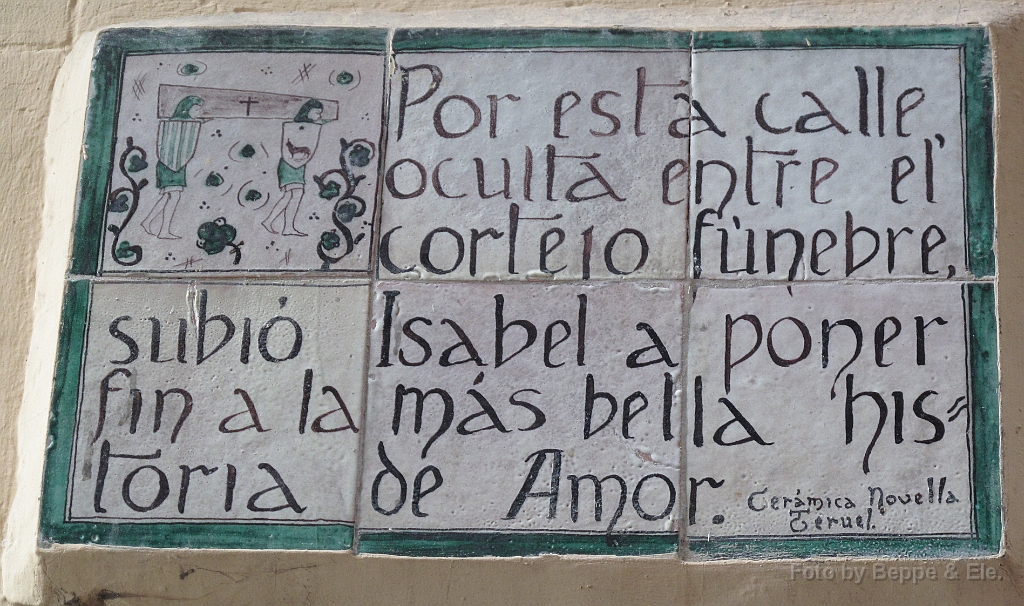 Por esta calle,
oculta entre el
cortejo fúnebre,
subió Isabel a poner
fin a la más bella his=
toria de Amor.
Cerámica Novella
Teruel.
Foto by Beppe & Ele.